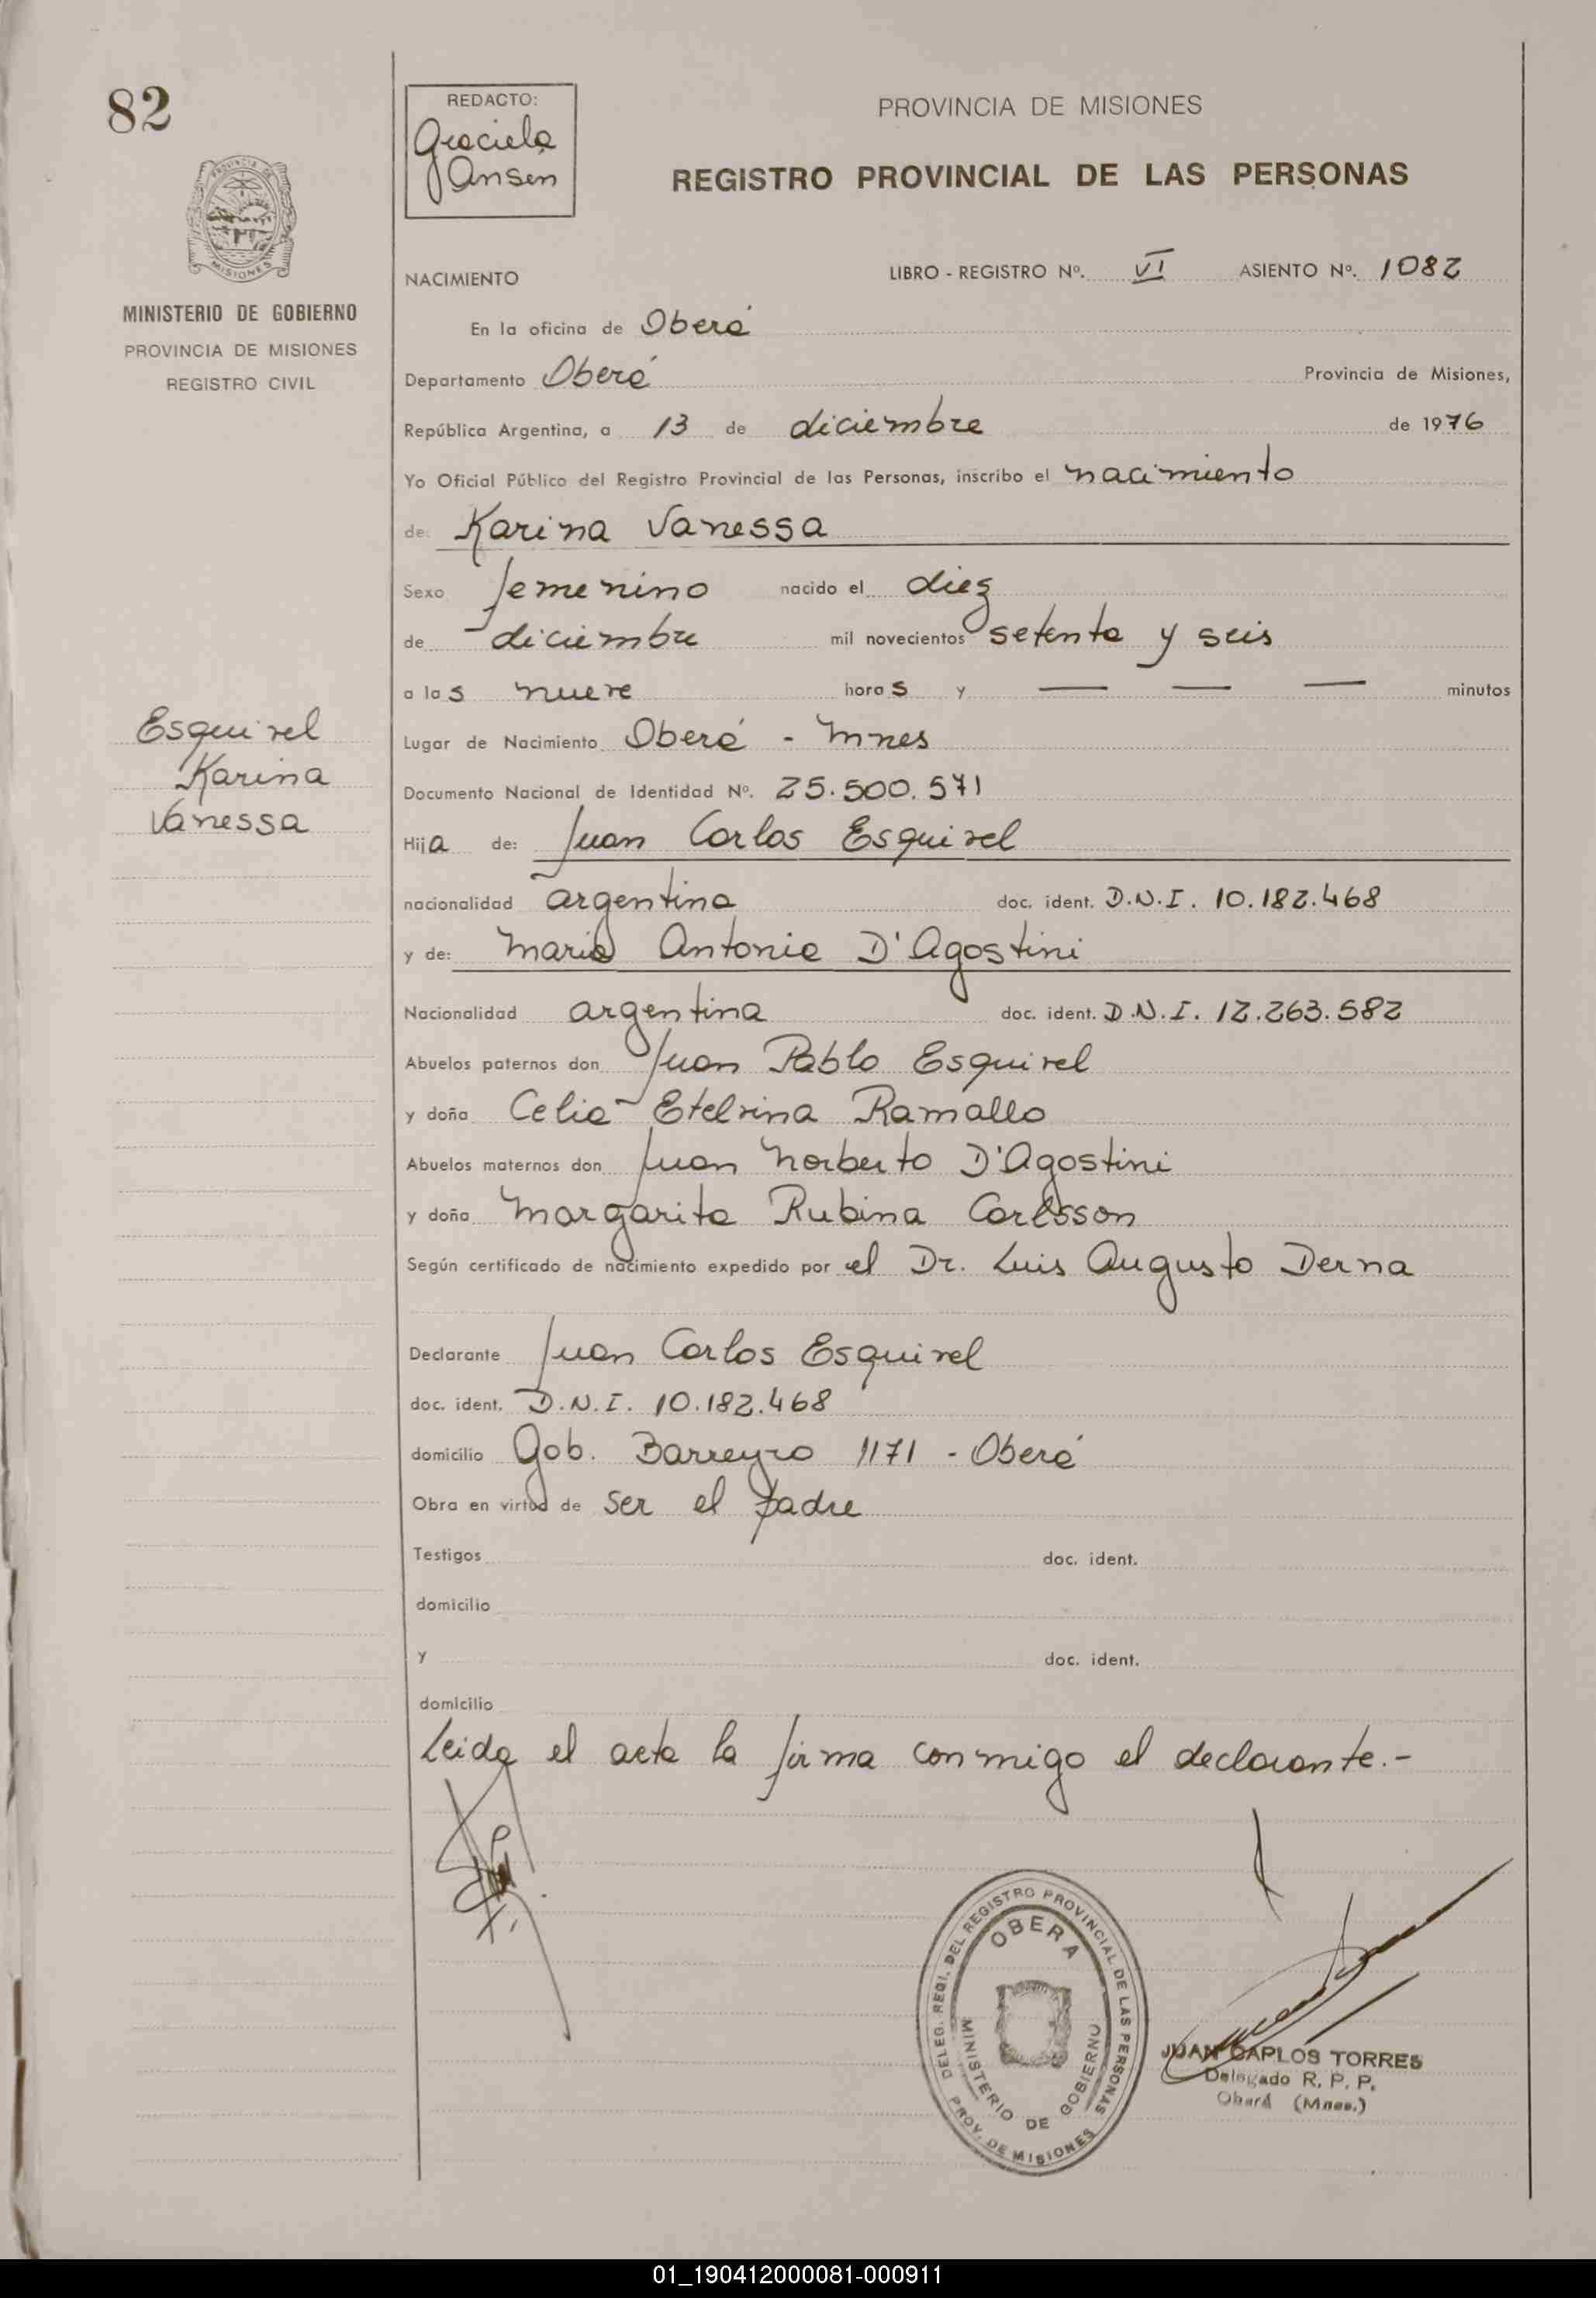 82
REDACTO:
Graciela
Ansen
PROVINCIA DE MISIONES
REGISTRO PROVINCIAL DE LAS PERSONAS
PROVINCIA DE
MISIONES
MINISTERIO DE GOBIERNO
PROVINCIA DE MISIONES
REGISTRO CIVIL
NACIMIENTO
LIBRO - REGISTRO Nº. VI ASIENTO Nº. 1082
En la oficina de Oberá
Departamento Oberá Provincia de Misiones,
República Argentina, a 13 de diciembre de 1976
Yo Oficial Público del Registro Provincial de las Personas, inscribo el nacimiento
de: Karina Vanessa
Sexo femenino nacido el diez
de diciembre mil novecientos setenta y seis
a las nueve horas y — — — minutos
Esquivel
Karina
Vanessa
Lugar de Nacimiento Oberá - Mnes
Documento Nacional de Identidad Nº. 25.500.571
Hija de: Juan Carlos Esquivel
nacionalidad argentina doc. ident. D.N.I. 10.182.468
y de: Maria Antonia D'Agostini
Nacionalidad argentina doc. ident. D.N.I. 12.263.582
Abuelos paternos don Juan Pablo Esquivel
y doña Celia Etelvina Ramallo
Abuelos maternos don Juan Norberto D'Agostini
y doña Margarita Rubina Carlsson
Según certificado de nacimiento expedido por el Dr. Luis Augusto Derna
Declarante Juan Carlos Esquivel
doc. ident. D.N.I. 10.182.468
domicilio Gob. Barreyro 1171 - Oberá
Obra en virtud de ser el padre
Testigos doc. ident.
domicilio
y doc. ident.
domicilio
Leida el acta la firma conmigo el declarante.-
DELEG. REGI. DEL REGISTRO PROVINCIAL DE LAS PERSONAS
OBERA
MINISTERIO DE GOBIERNO
PROV. DE MISIONES
JUAN CARLOS TORRES
Delegado R. P. P.
Oberá (Mnes.)
01_190412000081-000911